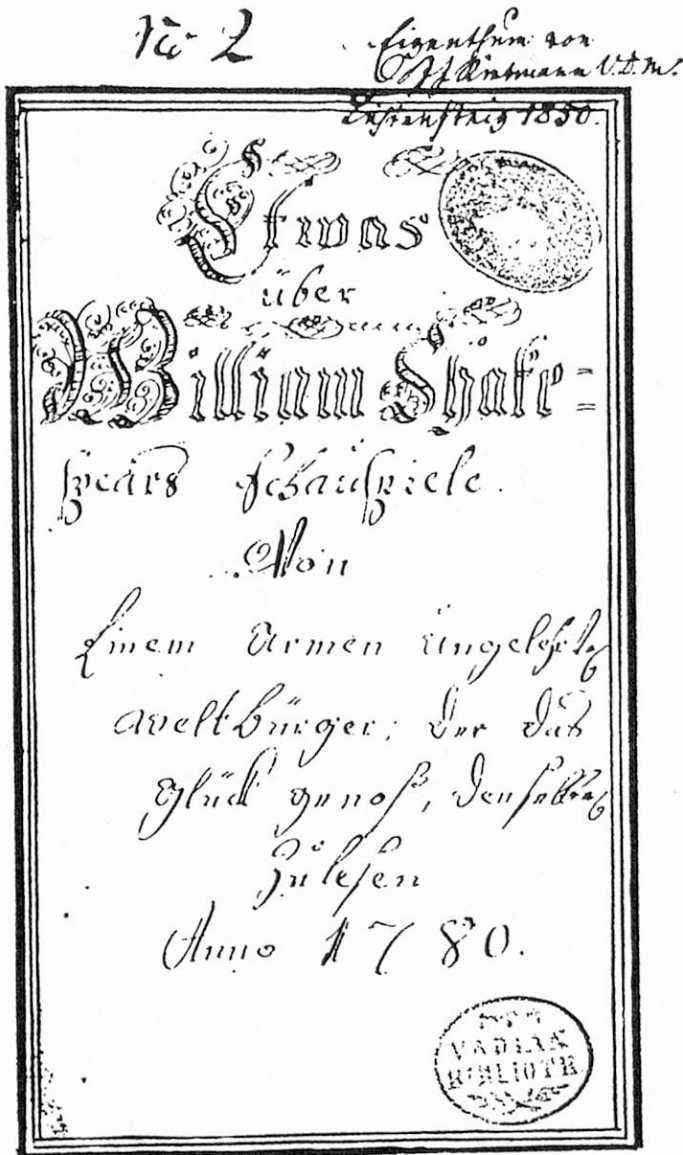 No 2
Eigenthum von
J J Rietmann V.D.M.
Lichtensteig 1850.
Etwas
über
William Shake=
spears Schauspiele.
Von
Einem Armen ungelehrten
Weltbürger; der das
Glück genoß, denselben
zu lesen
Anno 1780.
VADIAN
BIBLIOTH